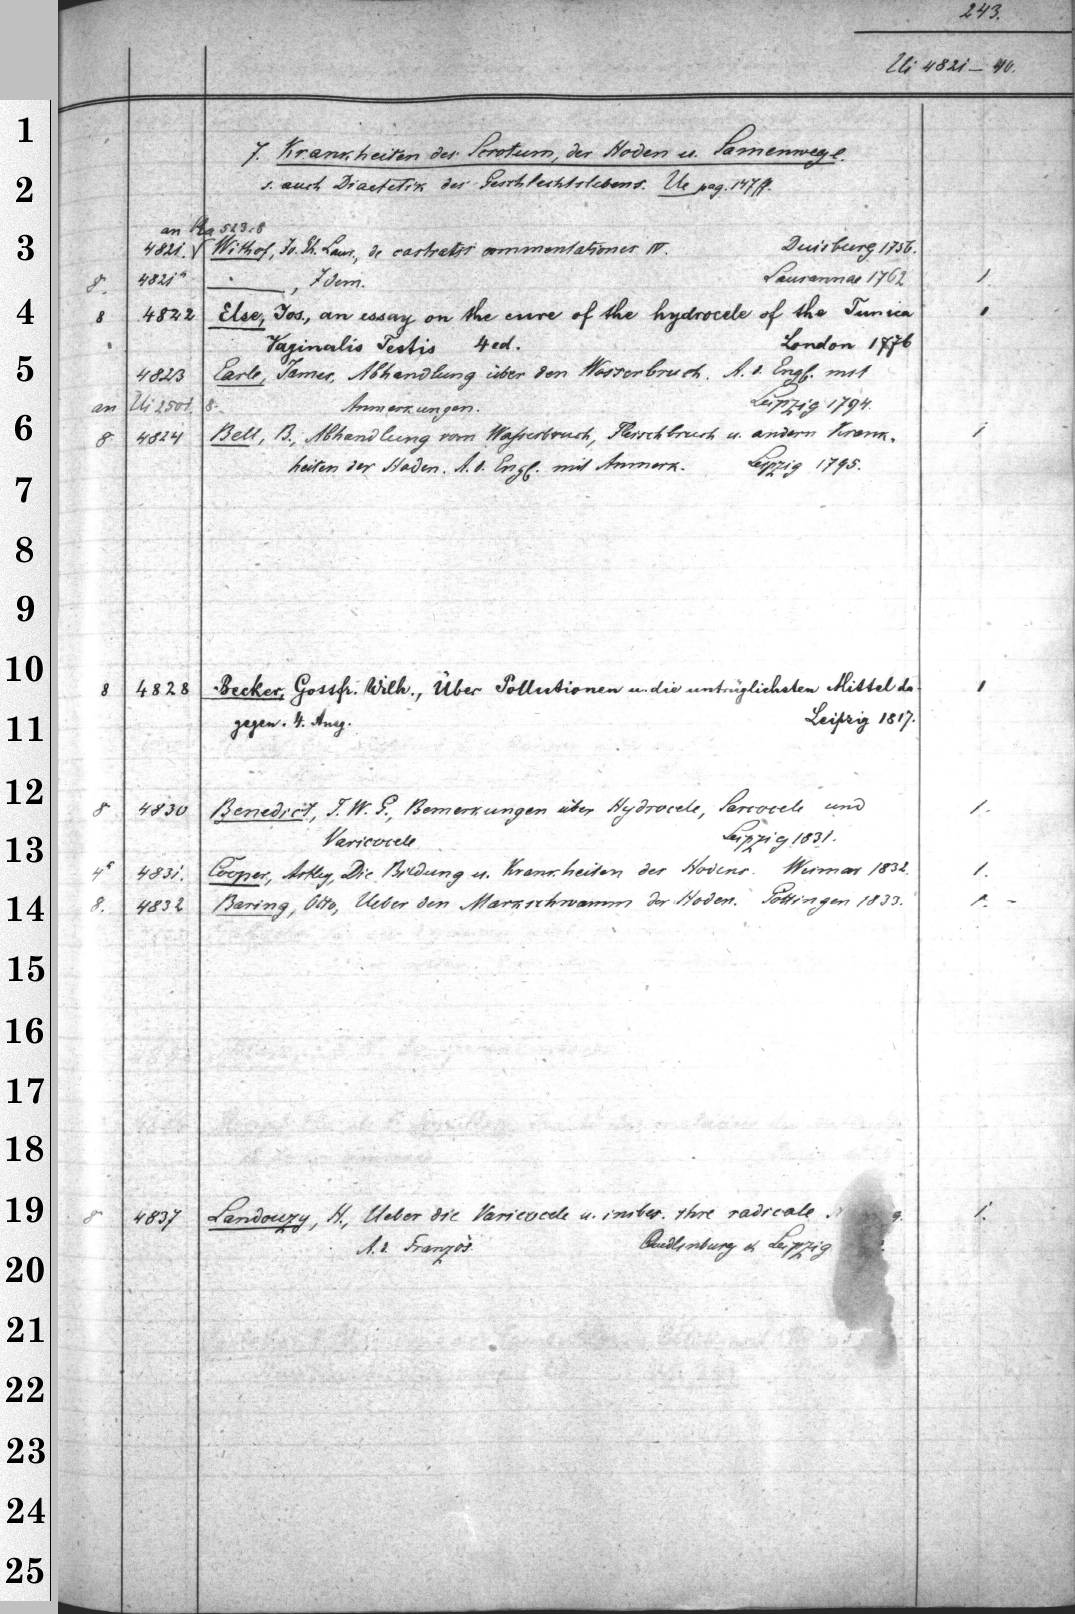 243.
Ui 4821 – 40.
7. Krankheiten des Scrotum, der Hoden u. Samenwege.
s. auch Diaetetik des Geschlechtslebens. Ue pag. 147 ff.
an 523:8
4821. √ Withof, Jo. Ph. Laur., de castratis commentationes IV. Duisburg 1756.
8. 4821a ———, Idem. Lausannae 1762 1.
8 4822 Else, Jos., an essay on the cure of the hydrocele of the Tunica 1
Vaginalis Testis 4 ed. London 1776
4823 Earle, James, Abhandlung über den Wasserbruch. A. d. Engl. mit
an Ui 2501. 8. Anmerkungen. Leipzig 1794.
8 4824 Bell, B., Abhandlung vom Wasserbruch, Fleischbruch u. andern Krank- 1
heiten der Hoden. A. d. Engl. mit Anmerk. Leipzig 1795.
8 4828 Becker, Gottfr. Wilh., Über Pollutionen u. die untrüglichsten Mittel da- 1
gegen. 4. Aufl. Leipzig 1817.
8 4830 Benedict, T. W. G., Bemerkungen über Hydrocele, Sarcocele und 1.
Varicocele Leipzig 1831.
4° 4831. Cooper, Astley, Die Bildung u. Krankheiten des Hodens. Weimar 1832. 1.
8. 4832 Baring, Otto, Ueber den Markschwamm der Hoden. Göttingen 1833. 1. -
8 4837 Landouzy, H., Ueber die Varicocele u. insbes. ihre radicale 1.
A. d. Französ. Quedlinburg u. Leipzig
1
2
3
4
5
6
7
8
9
10
11
12
13
14
15
16
17
18
19
20
21
22
23
24
25